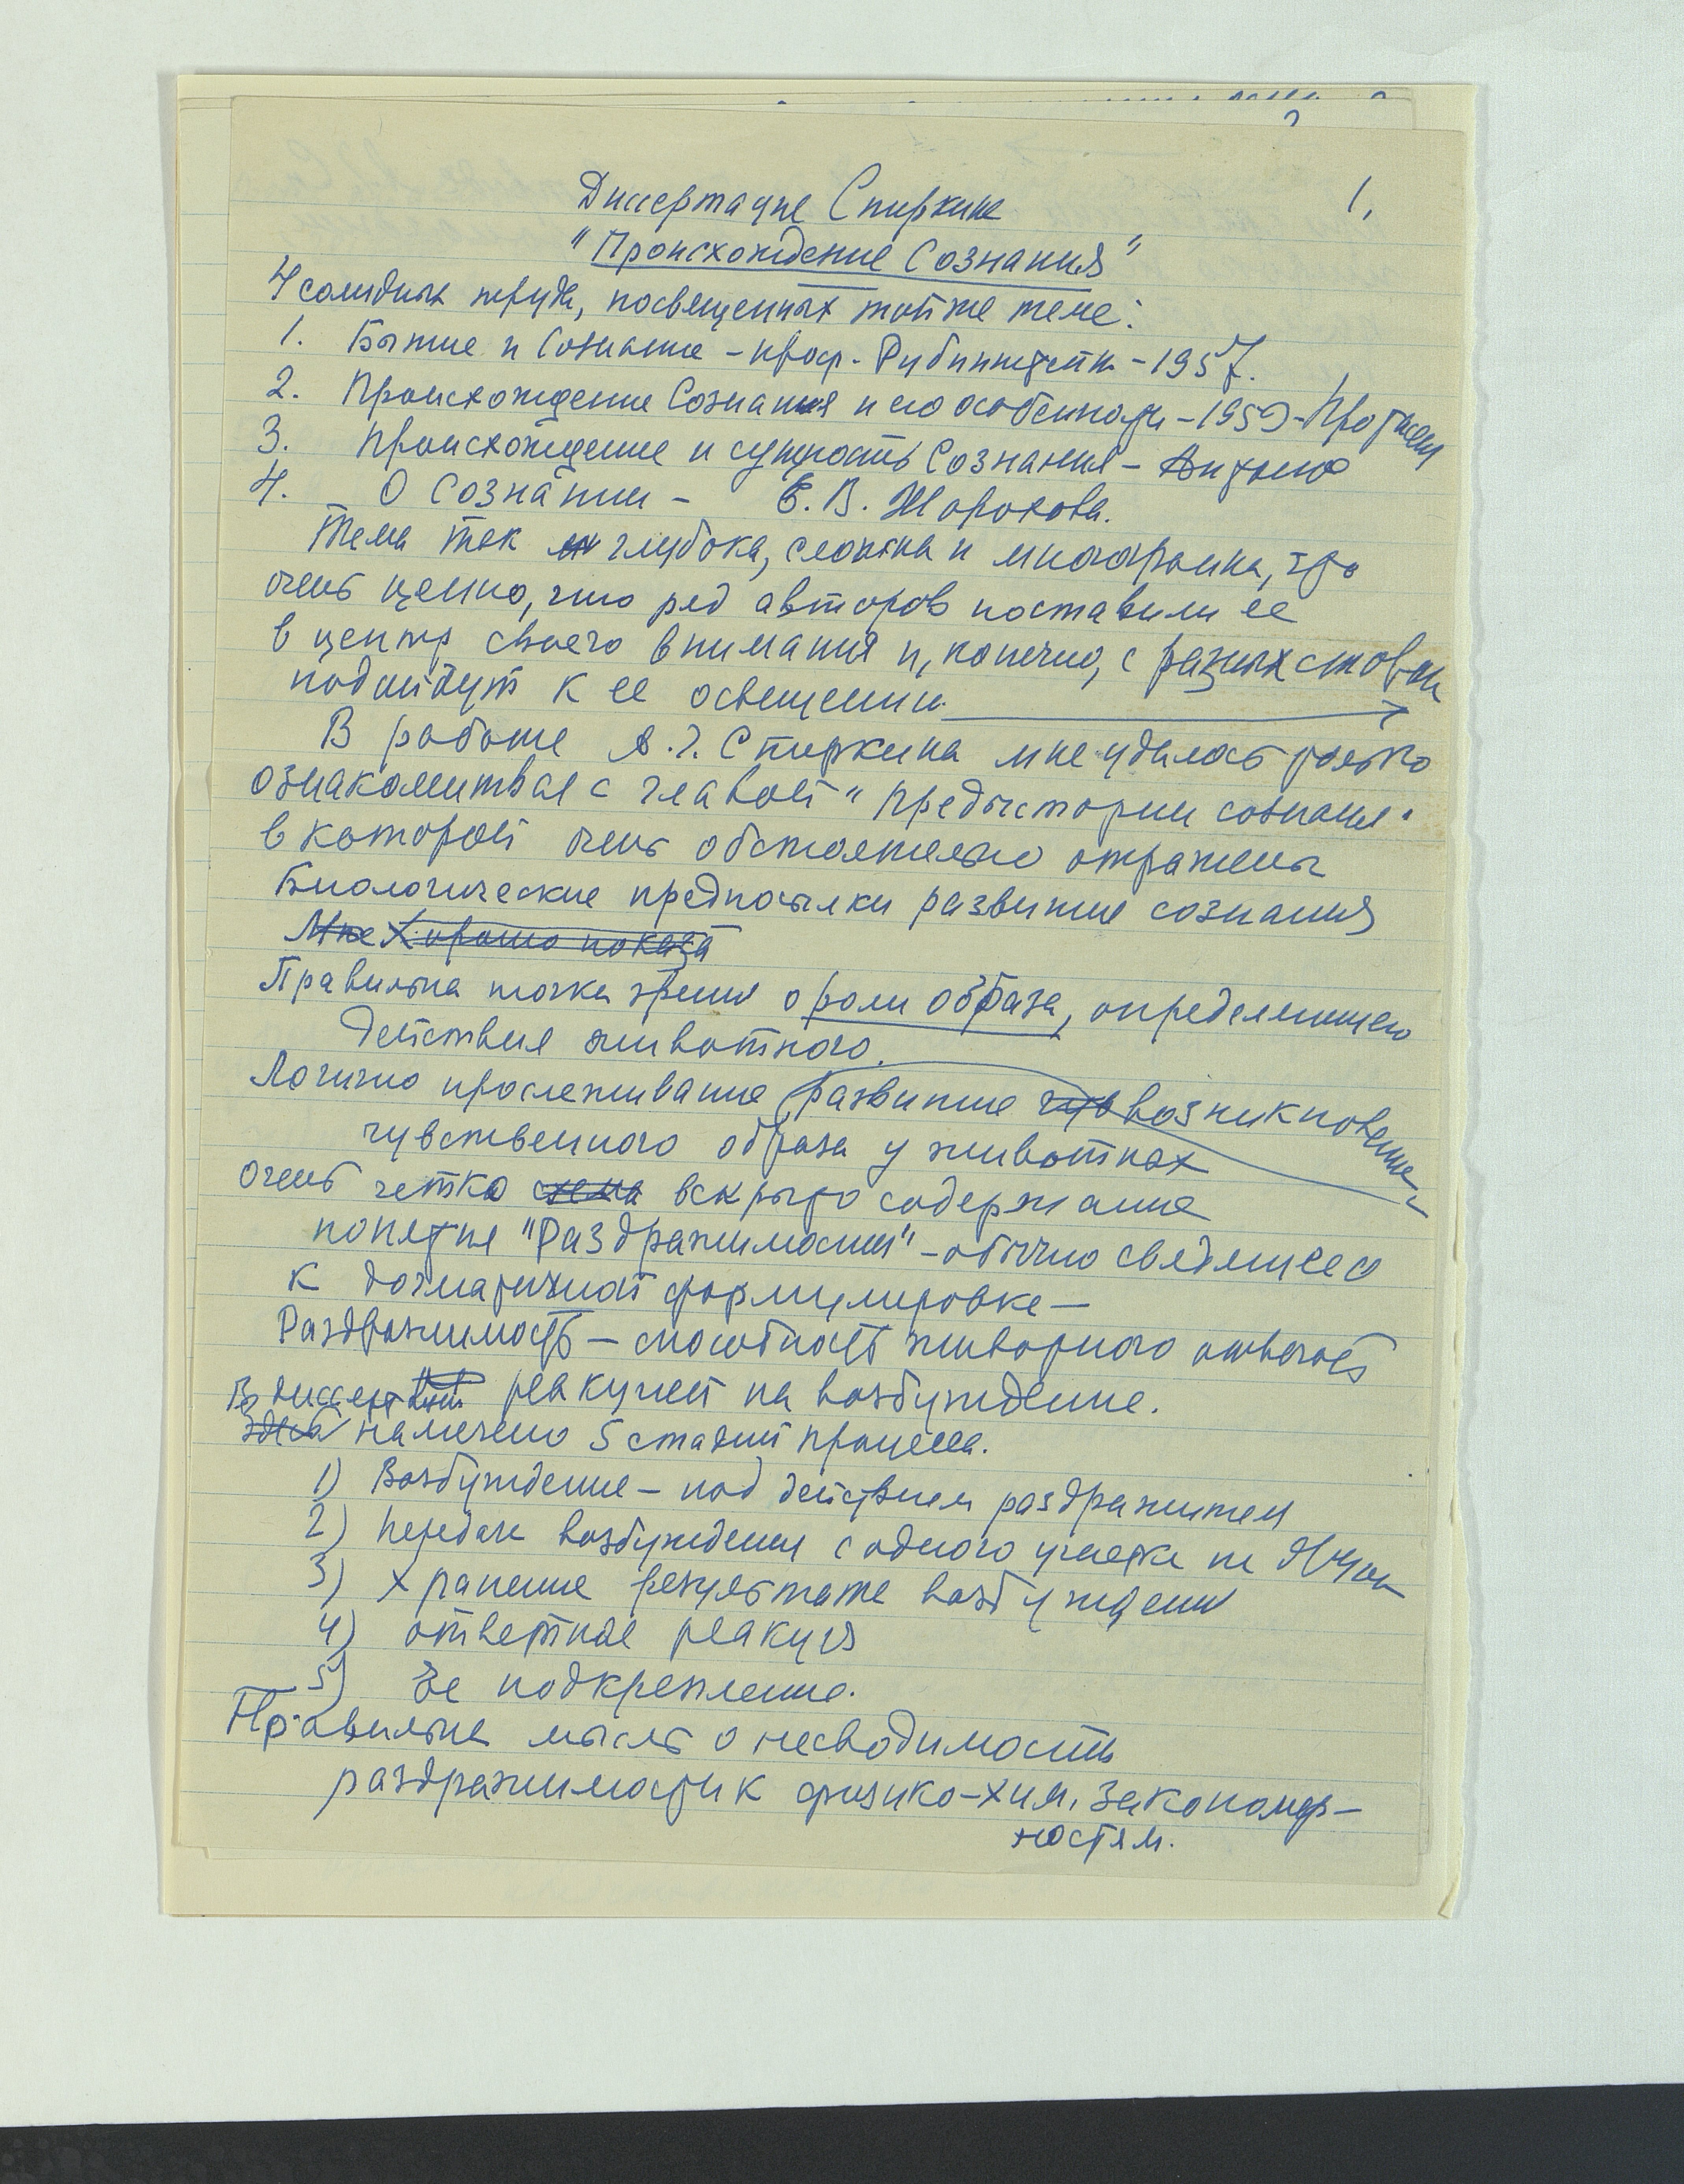 1.
Диссертация Спиркина
"Происхождение Сознания"
4 солидных труда, посвященных той же теме:
1. Бытие и Сознание – проф. Рубинштейн – 1957.
2. Происхождение Сознания и его особенности – 1959 – Протасеня
3. Происхождение и сущность Сознания –
4. О Сознании – Е. В. Шорохова.
Тема так глубока, сложна и многогранна, что
очень ценно, что ряд авторов поставили ее
в центр своего внимания и, конечно, с разных сторон
подойдут к ее освещению.
В работе А.Г. Спиркина мне удалось только
ознакомиться с главой "Предыстории сознания"
в которой очень обстоятельно отражены
Биологические предпосылки развития сознания
Мне Хорошо показа
Правильна точка зрения о роли образа, определяющего
действия животного.
Логично прослеживание развитие чув возникновение
чувственного образа у животных
Очень четко схема вскрыто содержание
понятия "Раздражимости" – обычно сводящееся
к догматичной формулировке –
Раздражимость – способность животного отвечать
реакцией на возбуждение.
В диссертации
здесь намечено 5 стадий процесса.
1) Возбуждение – под действием раздражителя
2) Передача возбуждения с одного участка на другой
3) Хранение результата возбуждения
4) ответная реакция
5) Ее подкрепление.
Правильна мысль о несводимость
раздражимости к физико-хим. закономер-
ностям.